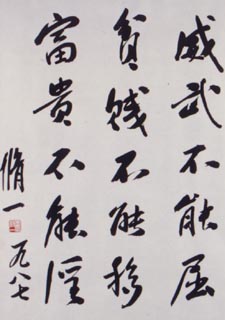 威武不能屈
貧賤不能移
富貴不能淫
脩一
九八七